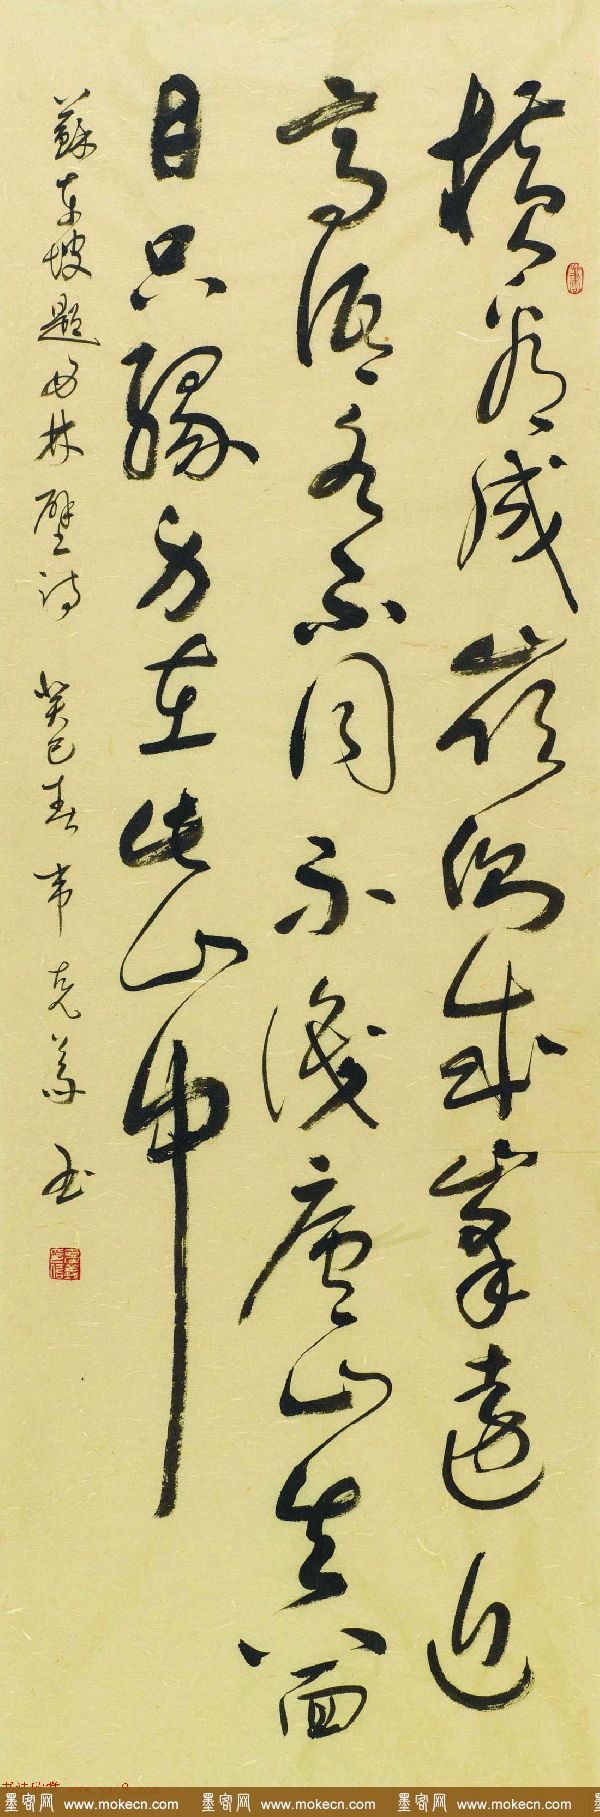 橫看成嶺側成峯遠近
高低各不同不識廬山真面
目只緣身在此山中
蘇東坡題西林壁詩 癸巳春韦克義书
墨客网 www.mokecn.com 墨客网 www.mokecn.com 墨客网 www.mokecn.com